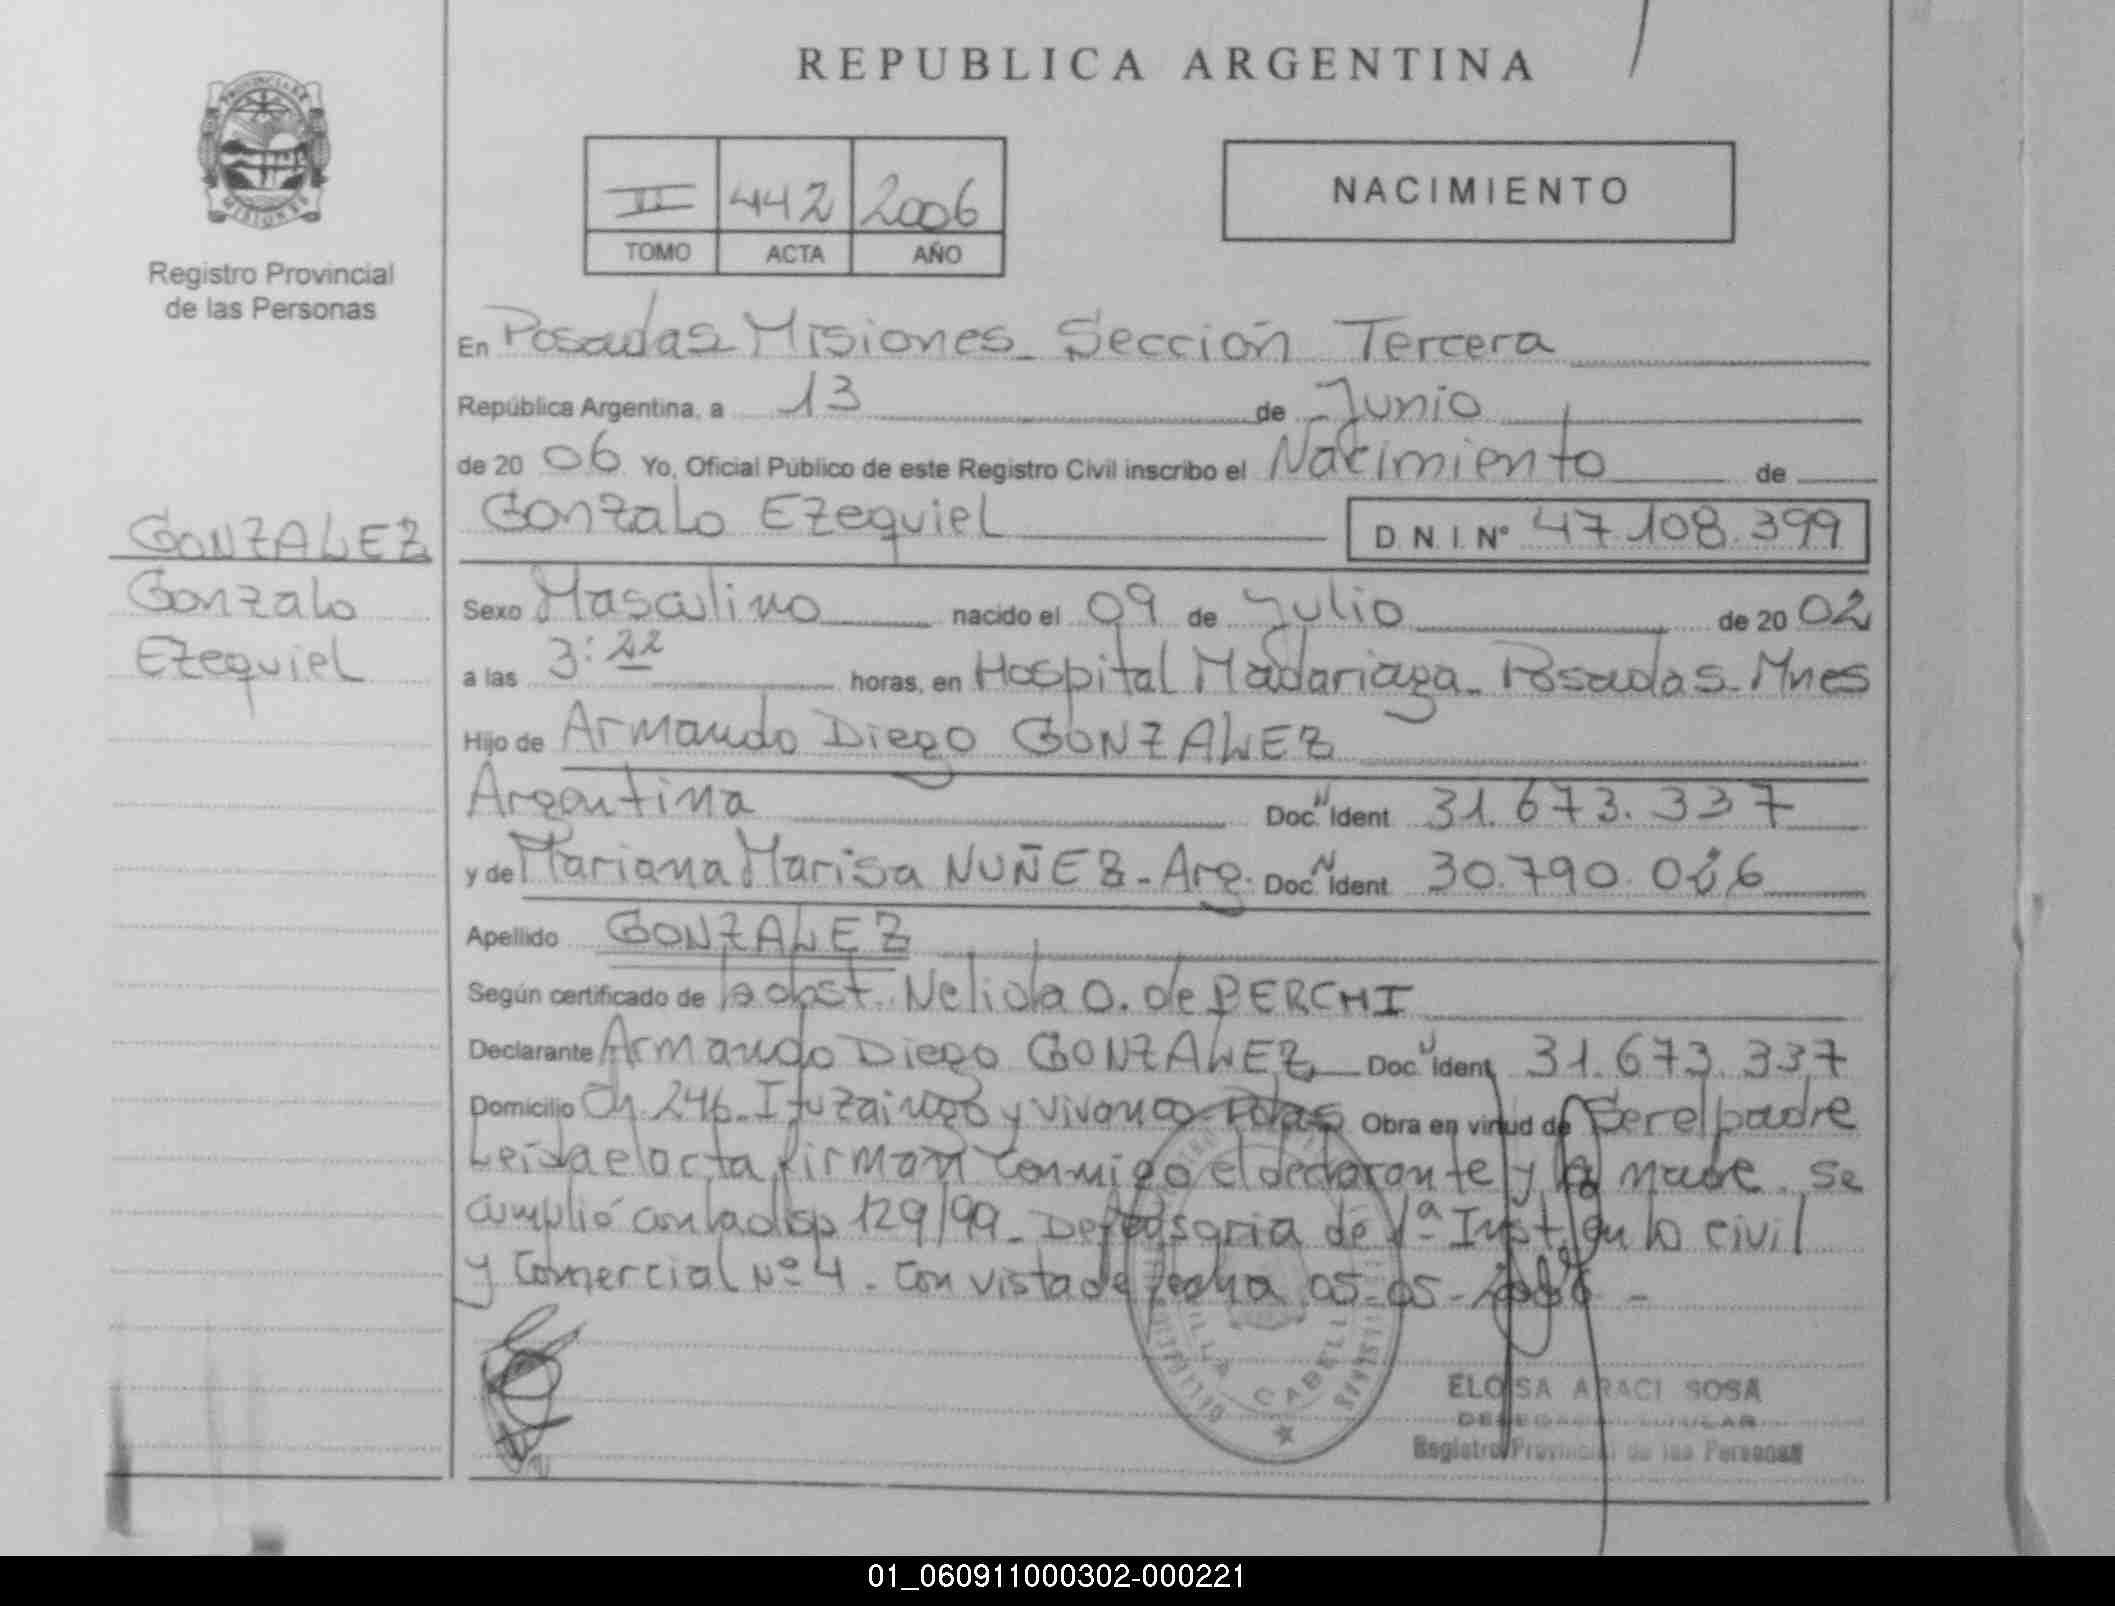 REPUBLICA ARGENTINA
PROVINCIA DE
MISIONES
Registro Provincial
de las Personas
II 442 2006
TOMO ACTA AÑO
NACIMIENTO
En Posadas Misiones - Sección Tercera
República Argentina, a 13 de Junio
de 20 06 Yo, Oficial Público de este Registro Civil inscribo el Nacimiento de
GONZALEZ
Gonzalo
Ezequiel
Gonzalo Ezequiel D.N.I. N° 47.108.399
Sexo Masculino nacido el 09 de Julio de 20 02
a las 3:22 horas, en Hospital Madariaga - Posadas - Mnes
Hijo de Armando Diego GONZALEZ
Argentina Doc. N Ident 31.673.337
y de Mariana Marisa NUÑEZ - Arg. Doc. N Ident 30.790.
Apellido GONZALEZ
Según certificado de la obst. Nelida O. de BERCHI
Declarante Armando Diego GONZALEZ Doc. N Ident 31.673.337
Domicilio Ch. 246 - Ituzaingo y Vivanco - Pdas Obra en virtud de Ser el padre
Leida el acta firman conmigo el declarante y la madre. Se
cumplió con la disp 129/99 - Defensoria de 1ª Inst. en lo civil
y Comercial Nº 4 - Con vista de fecha 05-05-2006 -
VILLA CABELLO
ELOISA ARACI SOSA
DELEGADA TITULAR
Registro Provincial de las Personas
01_060911000302-000221